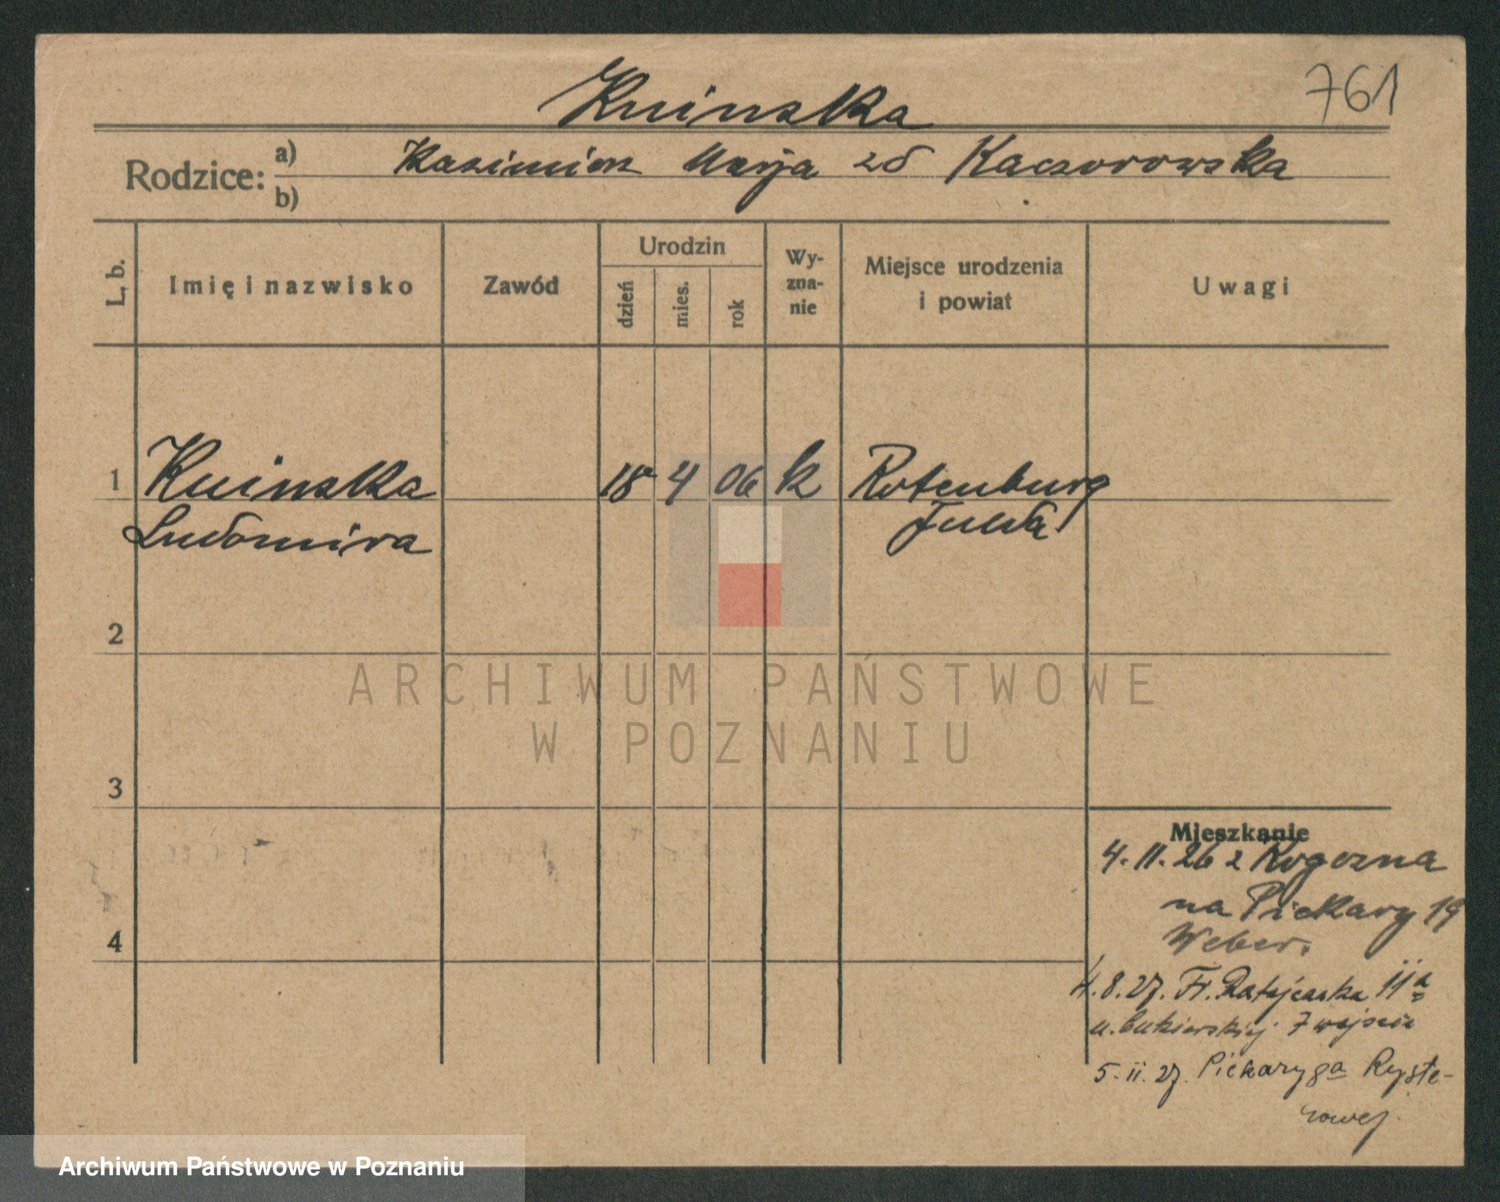 Kuinska
761
Rodzice:
a) Kazimierz Marja zd Kaczorowska
b)
L. b.
Imię i nazwisko
Zawód
Urodzin
dzień
mies.
rok
Wy-
zna-
nie
Miejsce urodzenia
i powiat
Uwagi
1 Kuinska 18 4 06 k Rotenburg
Ludomira Fulda
2
3
4
Mieszkanie
4.11.26 z Rogozna
na Piekary 19
Weber.
4.8.27. Fr. Ratajczaka 11a
u. Cukierskiej 7 wejście
5.11.27. Piekary 9a Ryste-
rowej.
ARCHIWUM PAŃSTWOWE
W POZNANIU
Archiwum Państwowe w Poznaniu